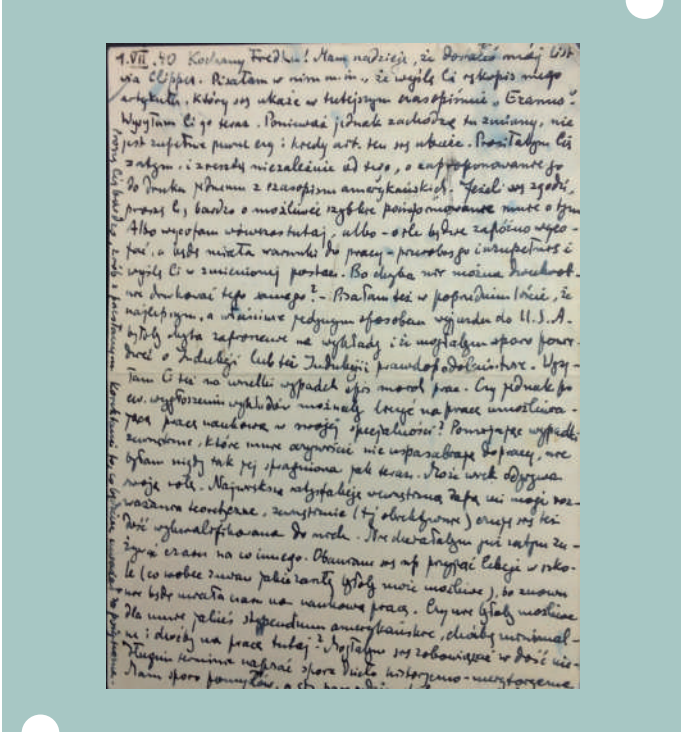 1.VII.40 Kochany Fredziu! Mam nadzieję, że dostałeś mój list
via Clipper. Pisałam w nim m.in., że wyślę Ci rękopis mego
artykułu, który się ukaże w tutejszym czasopiśmie „Erasmus”.
Wysyłam Ci go teraz. Ponieważ jednak zachodzą tu zmiany, nie
jest zupełnie pewne czy i kiedy art. ten się ukaże. Prosiłabym Cię
zatym, i zresztą niezależnie od tego, o zaproponowanie go
do druku jednemu z czasopism amerykańskich. Jeżeli się zgodzi,
proszę Cię bardzo o możliwie szybkie poinformowanie mnie o tym
Albo wycofam wówczas tutaj, albo - o ile będzie zapóźno wyco-
fać, a będę miała warunki do pracy - przerobię go i uzupełnię i
wyślę Ci w zmienionej postaci. Bo chyba nie można dwukrot-
nie drukować tego samego? - Pisałam też w poprzednim liście, że
najlepszym, a właściwie jedynym sposobem wyjazdu do U.S.A.
byłoby chyba zaproszenie na wykłady i że mogłabym sporo powie-
dzieć o Indukcji lub też Indukcji i prawdopodobieństwie.
Ci też na wszelki wypadek spis moich prac. Czy jednak po
ew. wygłoszeniu wykładów możnaby liczyć na pracę umożliwia-
jącą pracę naukową w swojej specjalności? Pomijając wypadki
zewnętrzne, które mnie oczywiście nie usposabiają do pracy, nie
byłam nigdy tak jej spragniona jak teraz. Może wiek odgrywa
swoją rolę. Największą satysfakcję wewnętrzną dają mi moje roz-
ważania teoretyczne, zewnętrznie (tj obiektywnie) czuję się też
dość wykwalifikowana do nich. Nie chciałabym już zatym zu-
żywać czasu na co innego. Obawiam się np przyjąć lekcje w szko-
le (co wobec zmian byłoby może możliwe), bo znowu
nie będę miała czasu na naukową pracę. Czy nie byłoby możliwe
dla mnie jakieś stypendium amerykańskie, choćby minimal-
ne i choćby na pracę tutaj? Mogłabym się zobowiązać w dość nie-
długim terminie napisać spore dzieło historyczno-merytoryczne
Mam sporo pomysłów, a
Proszę Cię bardzo, zrób z